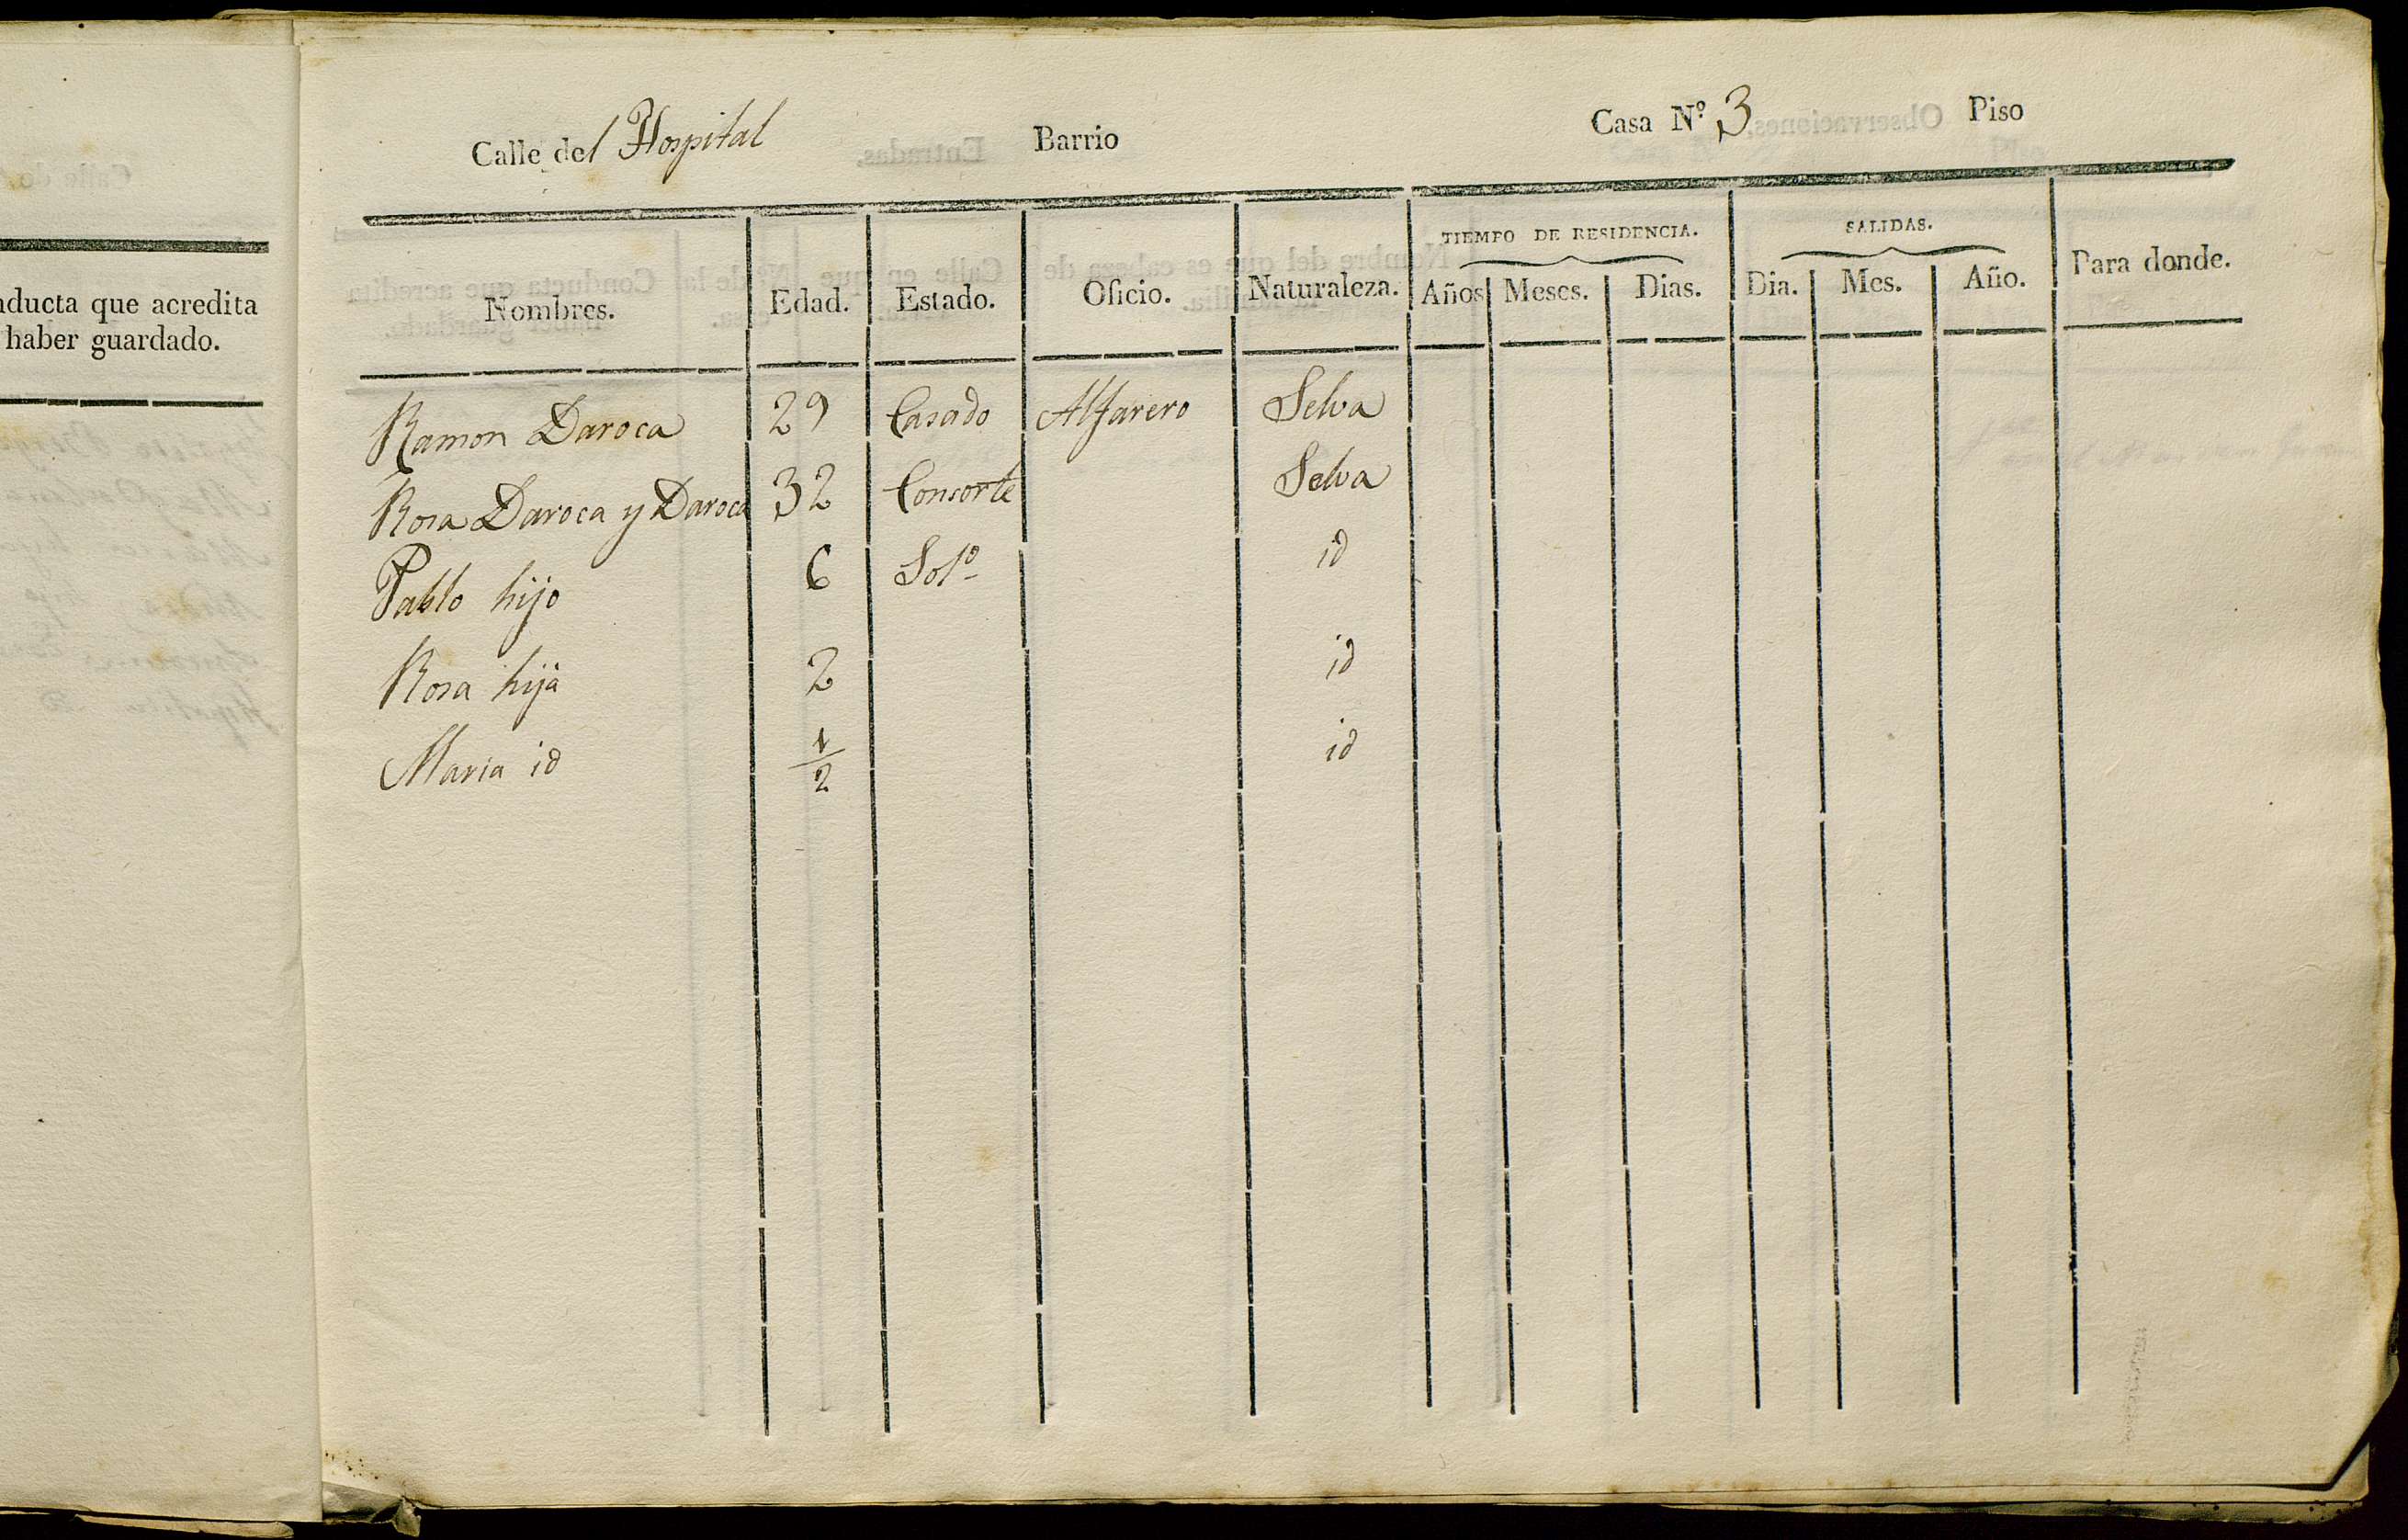 nducta que acredita
haber guardado.
Calle del Hospital Barrio Casa N.º 3 Piso
TIEMPO DE RESIDENCIA. SALIDAS.
Nombres. Edad. Estado. Oficio. Naturaleza. Años Meses. Dias. Dia. Mes. Año. Para donde.
Ramon Daroca 29 Casado Alfarero Selva
Rosa Daroca y Daroca 32 Consorte Selva
Pablo hijo 6 Solº id
Rosa hija 2 id
Maria id 1/2 id